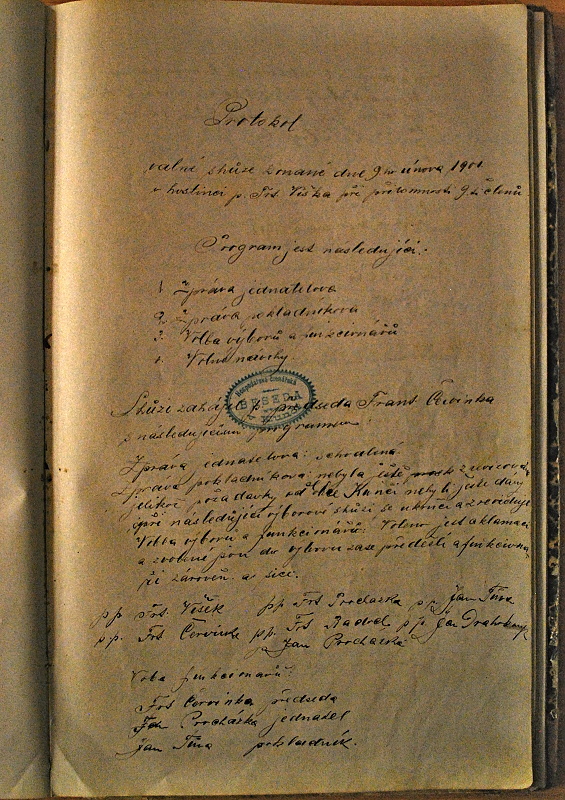 Protokol
valné shůze konané dne 9ho února 1901
v hostinci p. Frs. Víška při přítomnosti 9ti členů
Program jest následující:
1 Zpráva jednatelova
2. Zpráva pokladníkova
3. Volba výborů a funkcionářů
4. Volné návrhy
Hospodářsko čtenářská
BESEDA
Shůzi zahájil p. předseda Frant Červinka
s následujícím programem:
Zpráva jednatelova: schválená
Zpráva pokladníkova: nebyla
jelikož požadavky od nebyli dány
při následující výborové shůzi se a zreviduje
Volba výboru a funkcionářů: Voleno jest aklamací
a zvoleni jsou do výboru zase předešlí a funkcionáři
při zároveň a sice:
pp Frs. Víšek pp Frs Procházka pp Jan Tůma
pp. Frs Červinka pp. Frs pp Jan
Jan Procházka
Volba funkcionářů:
Frs Červinka předseda
Jan Procházka jednatel
Jan Tůma pokladník.